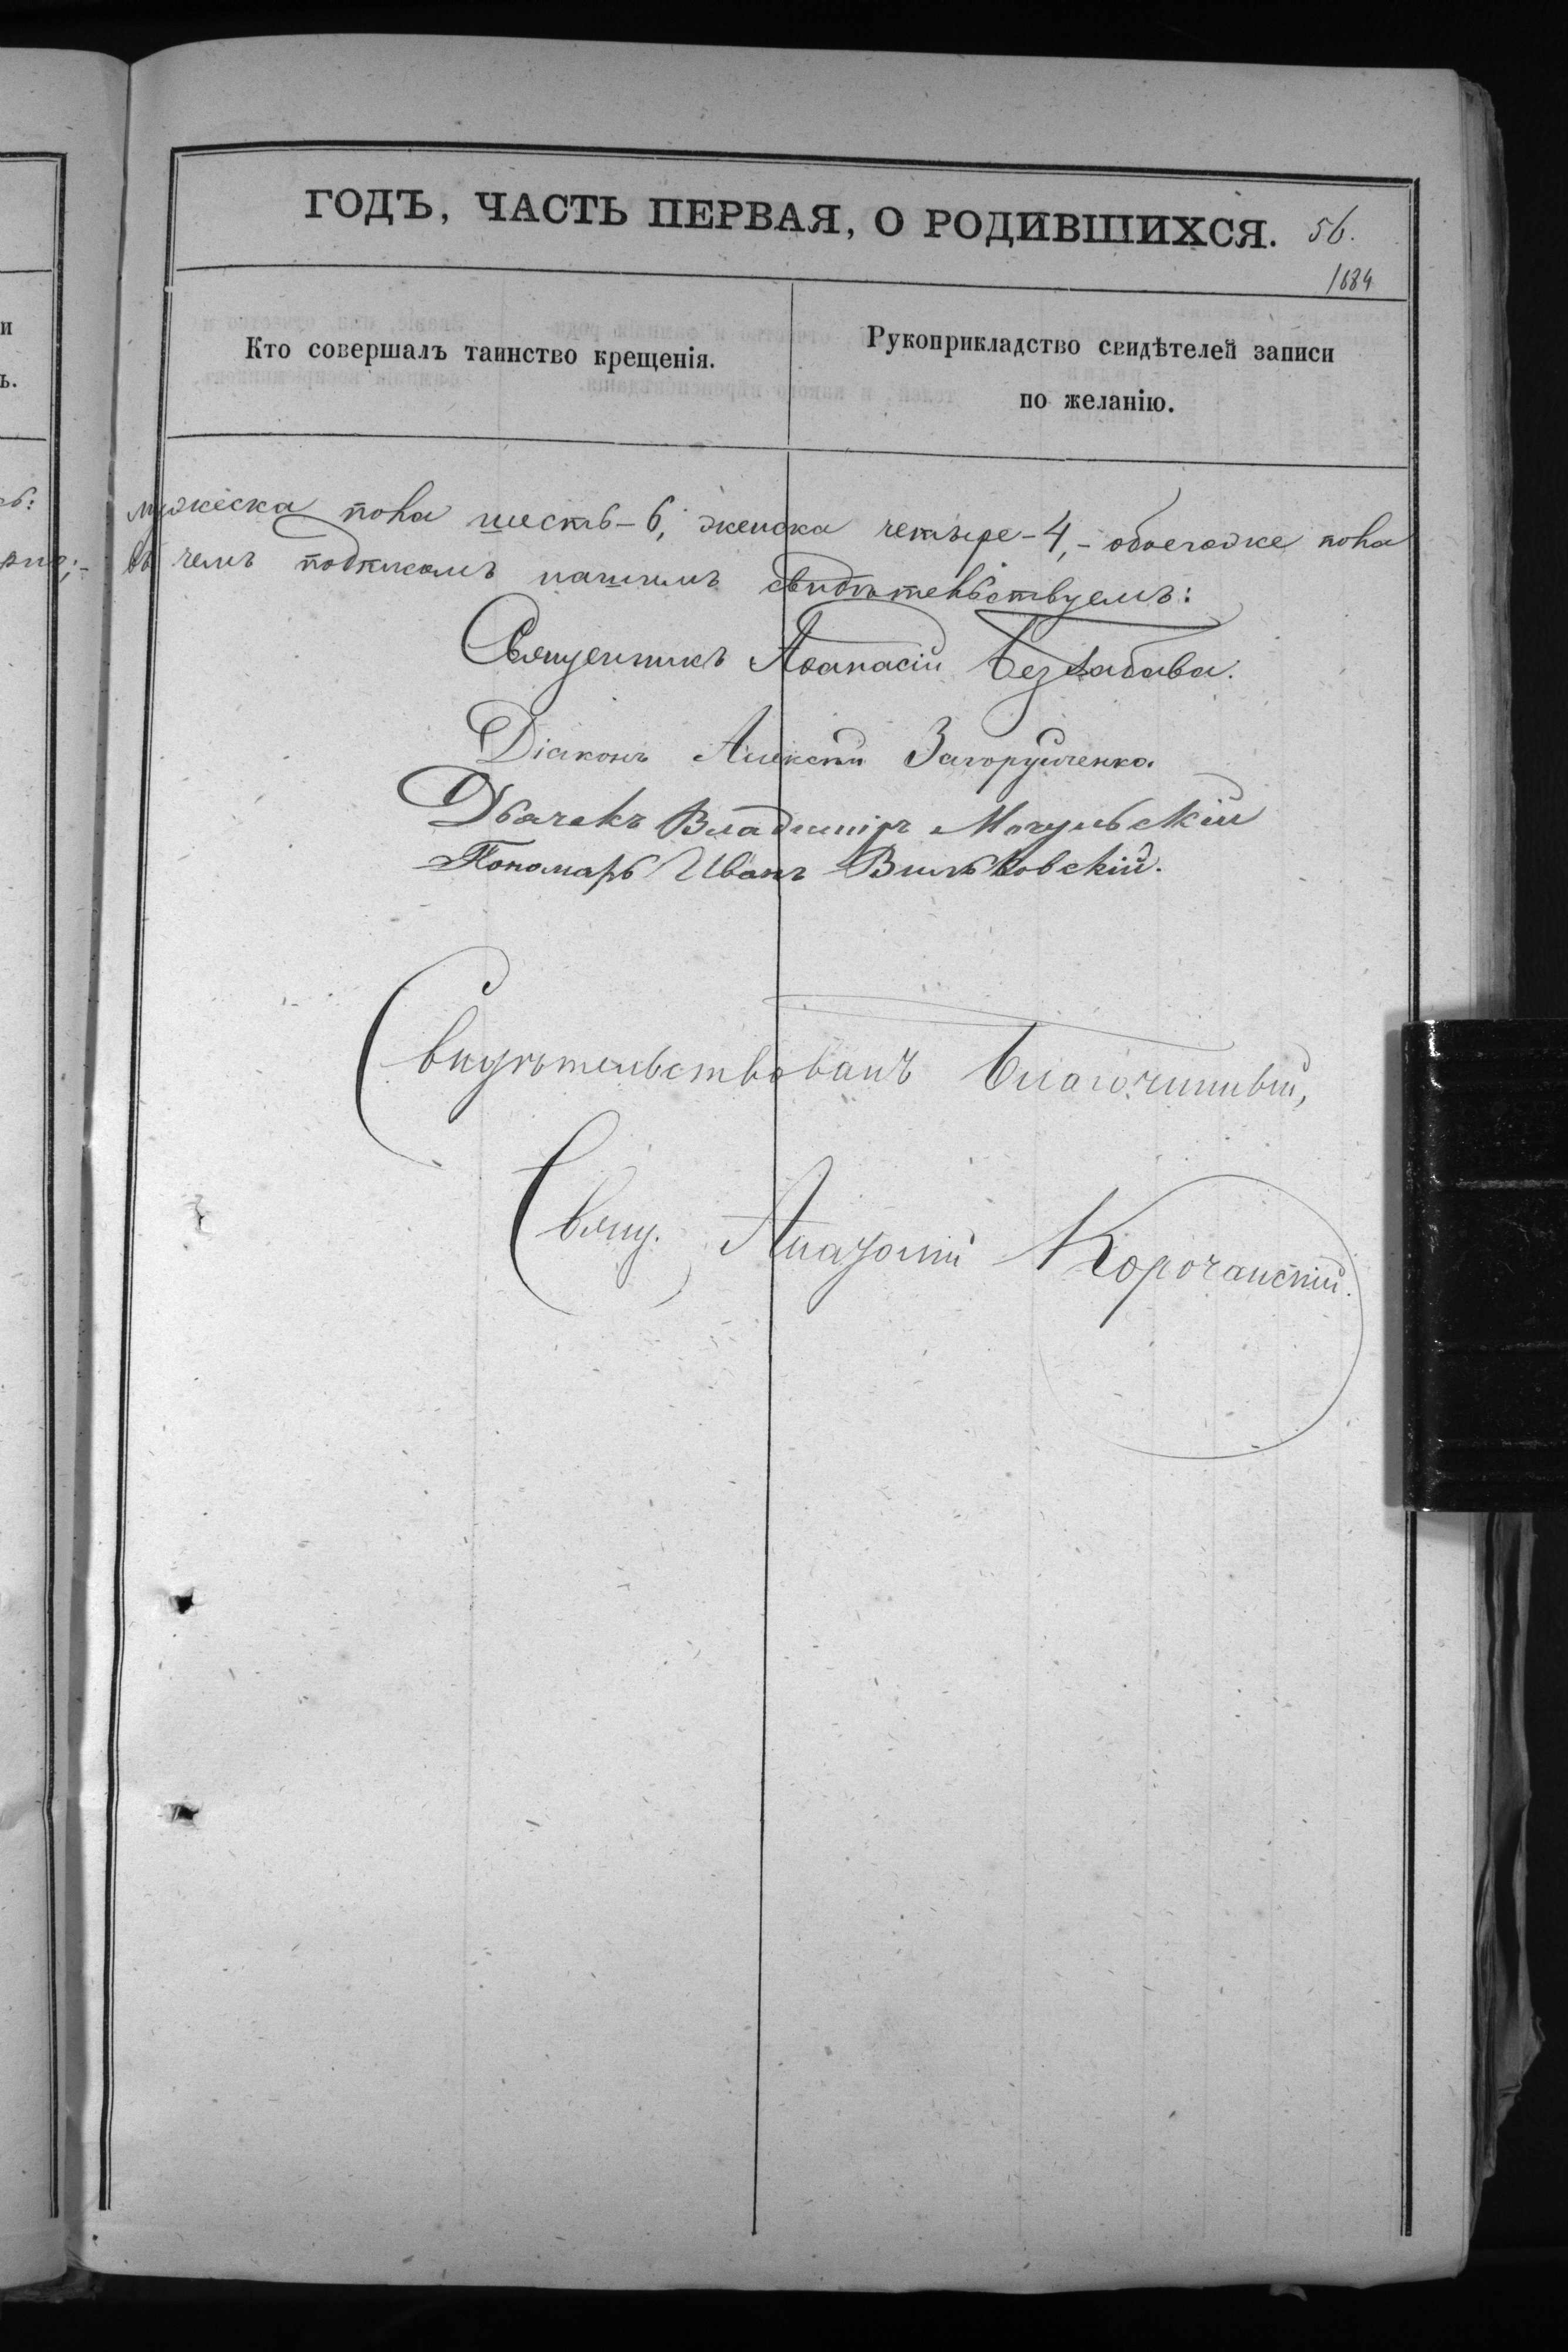 ГОДЪ, ЧАСТЬ ПЕРВАЯ, О РОДИВШИХСЯ. 56.
1684
Кто совершалъ таинство крещенія.
Рукоприкладство свидѣтелей записи
по желанію.
мужеска пола шесть-6, женска четыре-4,- обоегоже пола
въ чемъ подписомъ нашимъ свидѣтельствуемъ:
Священникъ Аѳанасій Беззабава.
Діаконъ Алексѣй Загоруйченко.
Дьячекъ Владиміръ Могульскій
Пономарь Иванъ Вильковскій.
Свидѣтельствовалъ Благочинный,
Свящ. Анатолій Корочанскій.